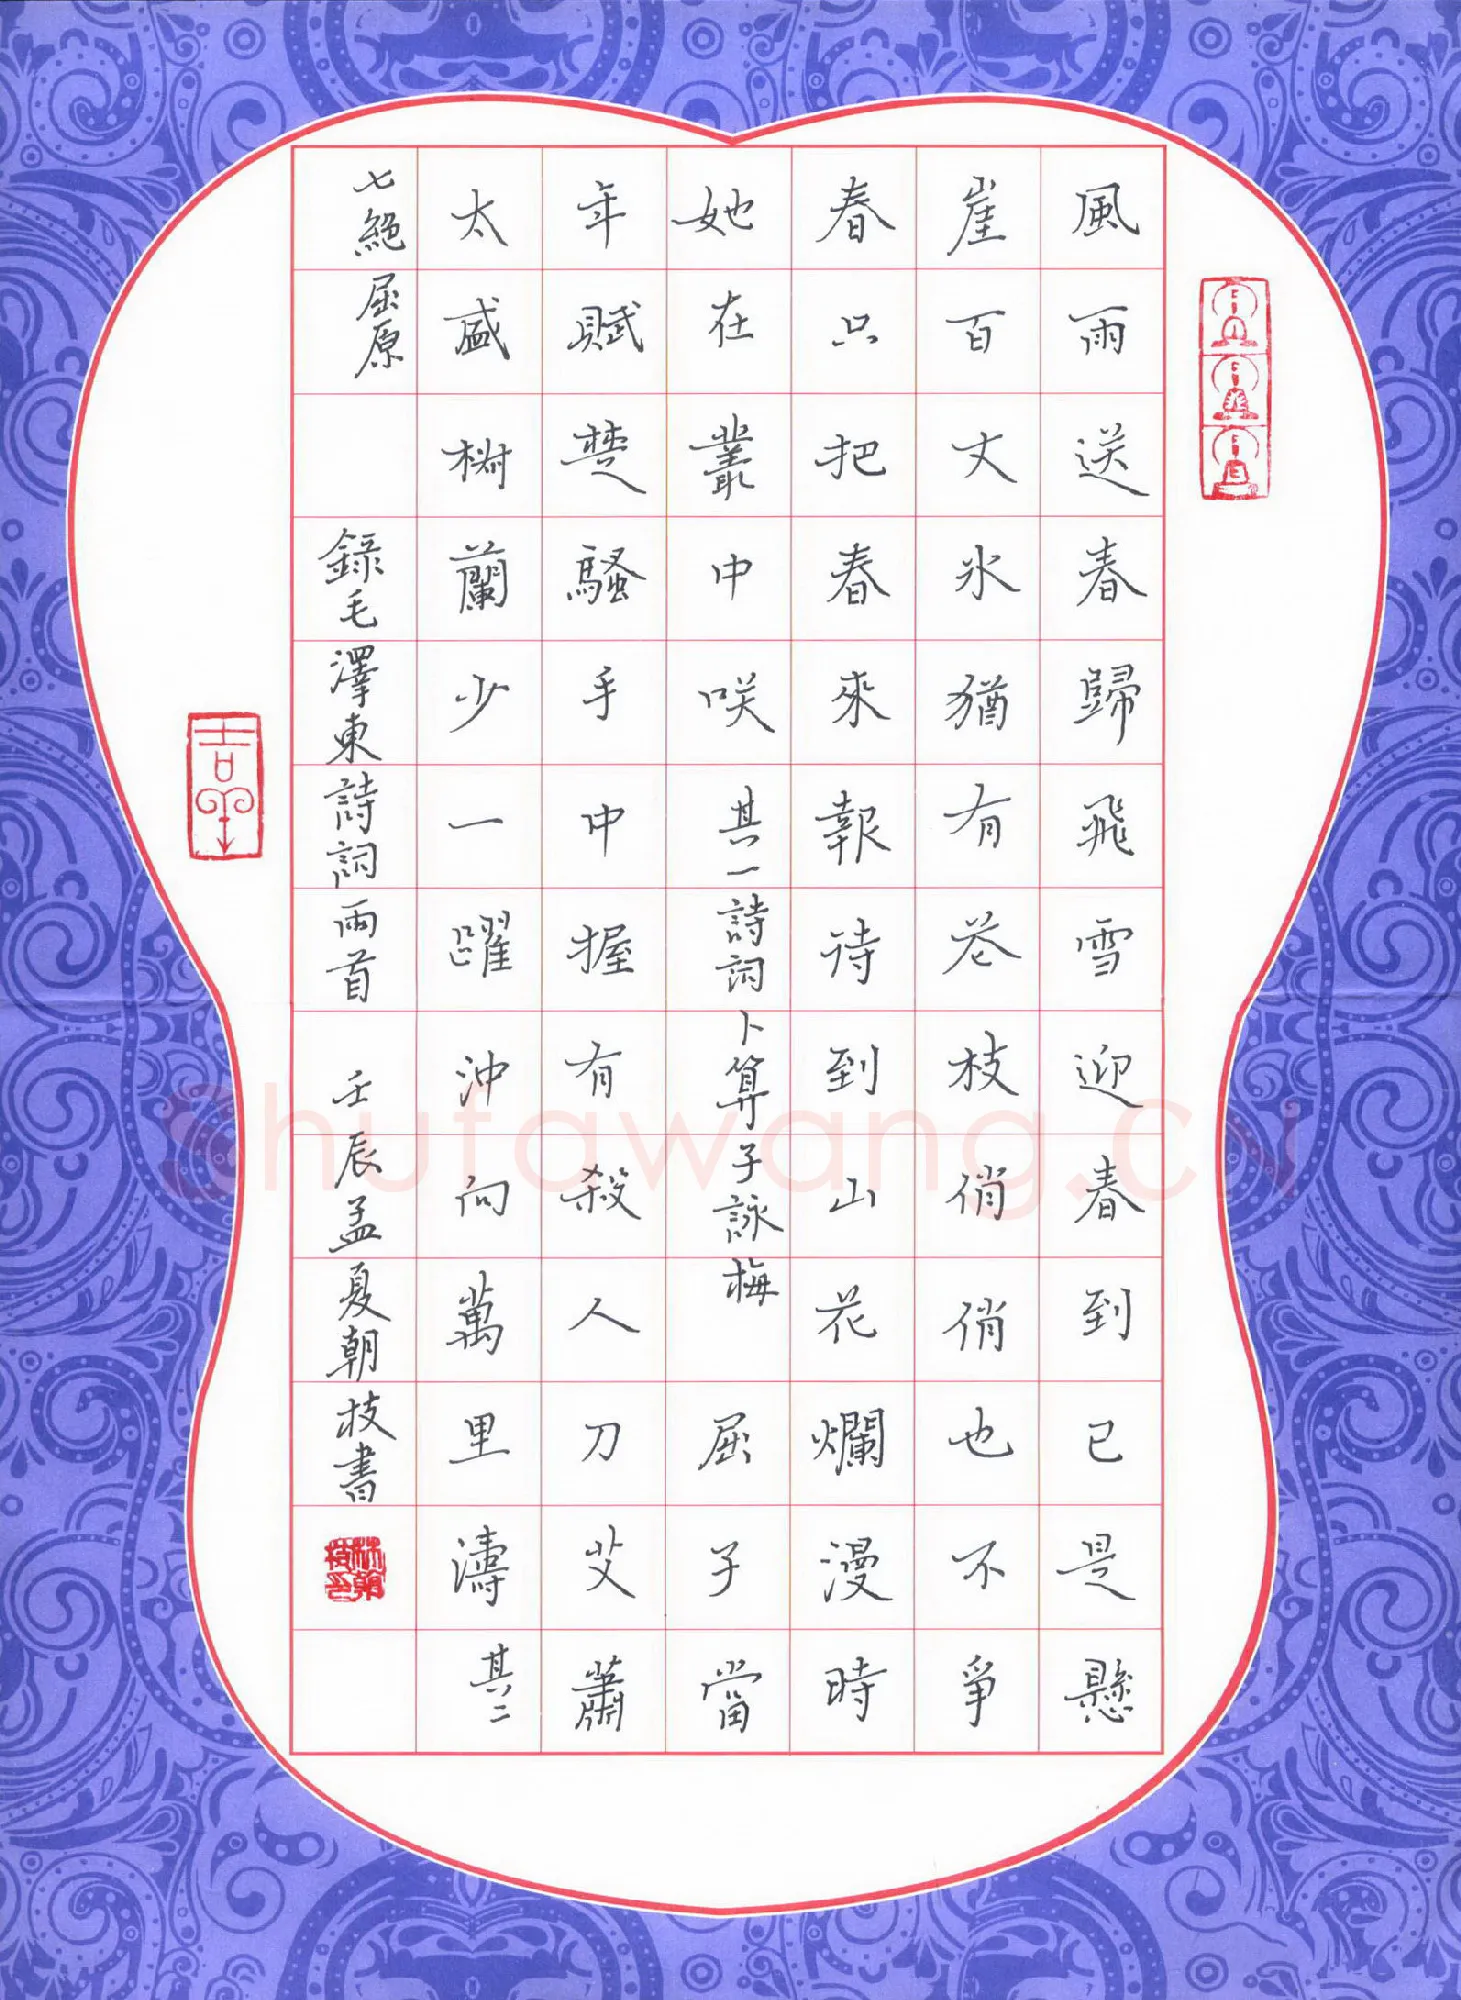 風雨送春歸飛雪迎春到已是懸
崖百丈冰猶有花枝俏俏也不爭
春只把春來報待到山花爛漫時
她在叢中咲其一詩詞卜算子詠梅屈子當
年賦楚騷手中握有殺人刀艾蕭
太盛樹蘭少一躍沖向萬里濤其二
七絕屈原錄毛澤東詩詞兩首壬辰孟夏朝枝書
shufawang.cn